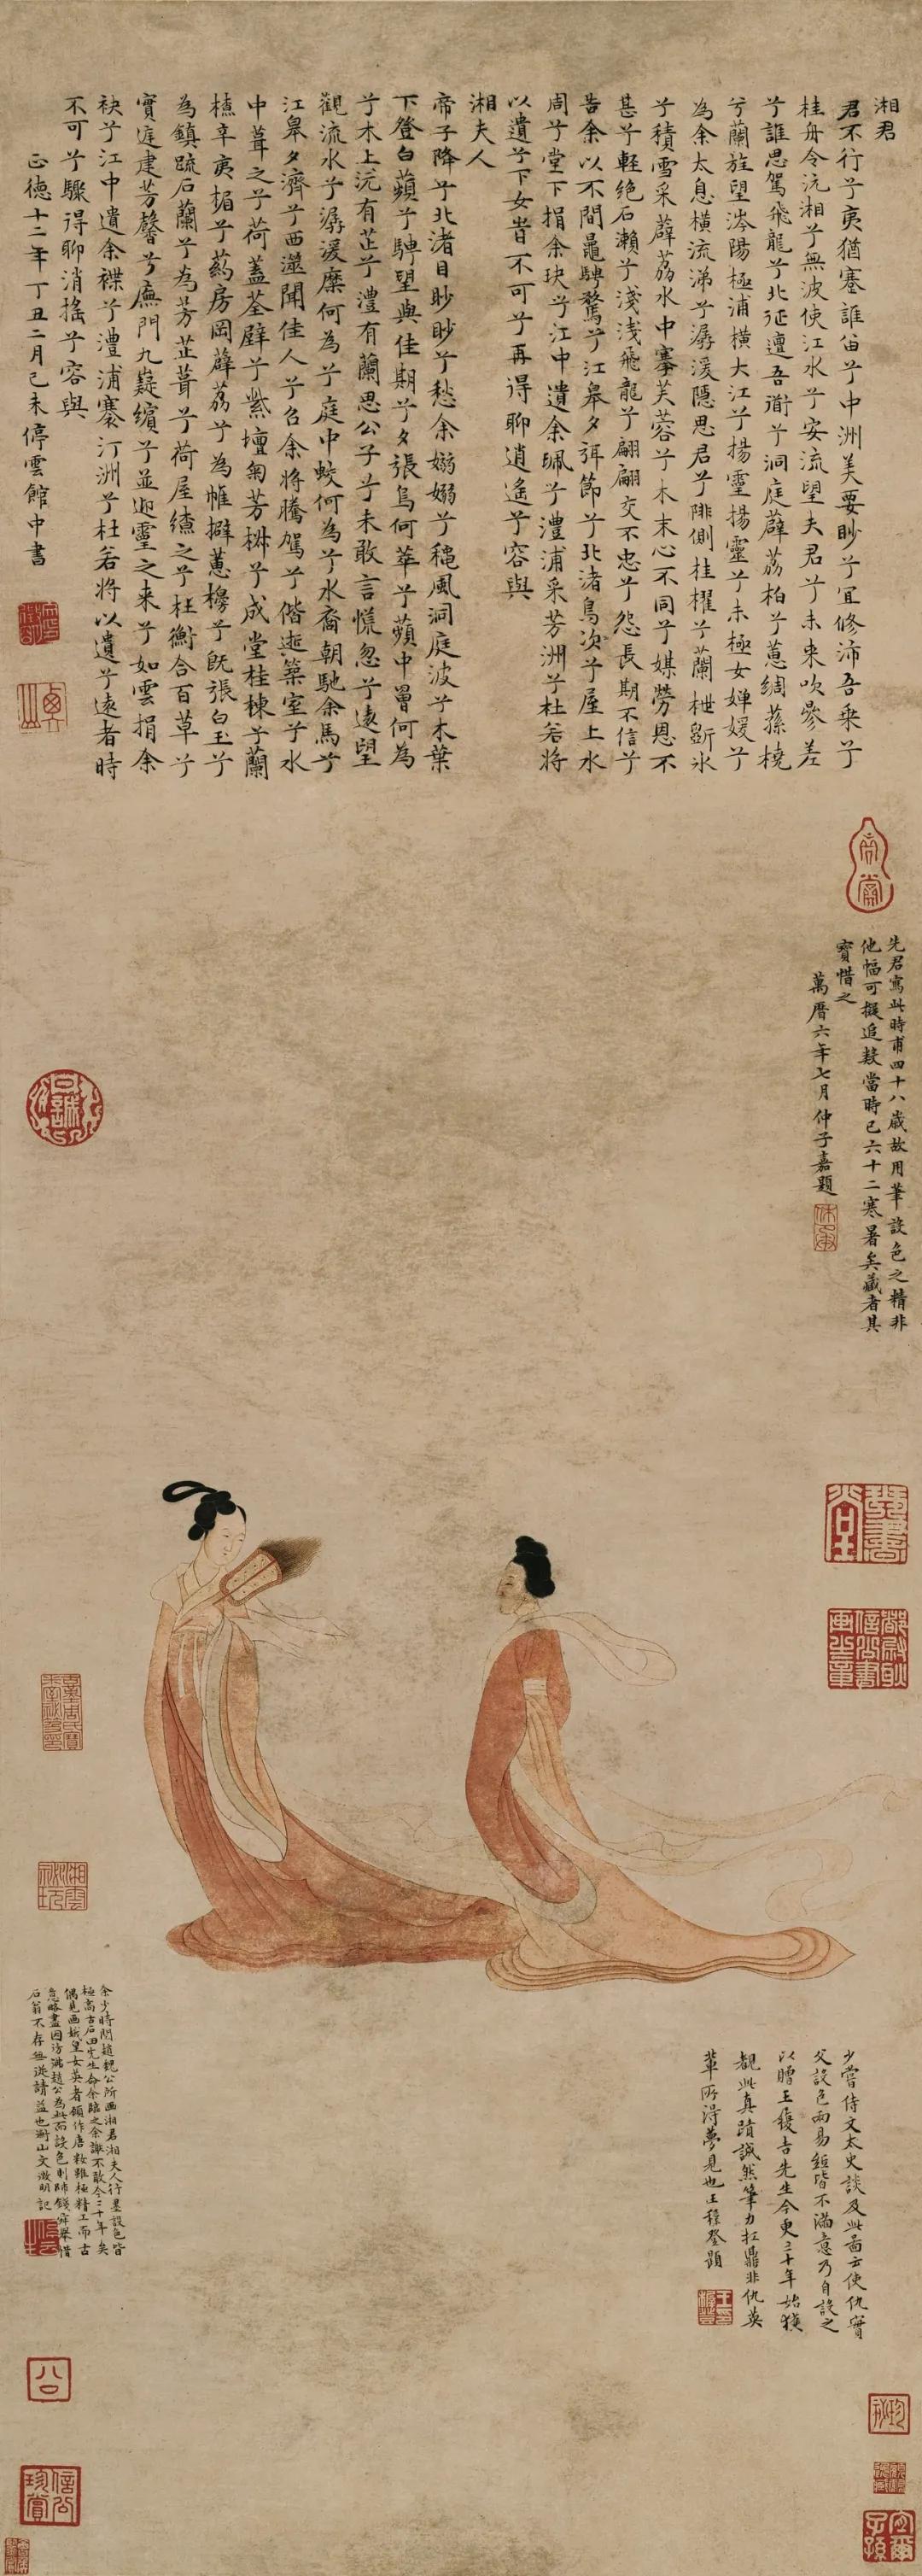 湘君
君不行兮夷猶蹇誰留兮中洲美要眇兮宜修沛吾乘兮
桂舟令沅湘兮無波使江水兮安流望夫君兮未来吹參差
兮誰思駕飛龍兮北征邅吾道兮洞庭薜荔柏兮蕙綢蓀橈
兮蘭旌望涔陽極浦橫大江兮揚靈揚靈兮未極女嬋媛兮
為余太息橫流涕兮潺湲隱思君兮陫側桂櫂兮蘭枻斵氷
兮積雪采薜荔水中搴芙蓉兮木末心不同兮媒勞恩不
甚兮輕絶石瀨兮淺淺飛龍兮翩翩交不忠兮怨長期不信兮
告余以不閒鼂騁騖兮江皋夕弭節兮北渚鳥次兮屋上水
周兮堂下捐余玦兮江中遺余珮兮澧浦采芳洲兮杜若將
以遺兮下女旹不可兮再得聊逍遙兮容與
湘夫人
帝子降兮北渚目眇眇兮愁余嫋嫋兮穐風洞庭波兮木葉
下登白蘋兮騁望與佳期兮夕張鳥何萃兮蘋中罾何為
兮木上沅有芷兮澧有蘭思公子兮未敢言慌忽兮遠望
觀流水兮潺湲麋何為兮庭中蛟何為兮水裔朝馳余馬兮
江皋夕濟兮西澨聞佳人兮召余將騰駕兮偕逝築室兮水
中葺之兮荷蓋荃壁兮紫壇匊芳椒兮成堂桂棟兮蘭
橑辛夷楣兮葯房罔薜荔兮為帷擗蕙櫋兮既張白玉兮
為鎮疏石蘭兮為芳芷葺兮荷屋繚之兮杜衡合百草兮
實庭建芳馨兮廡門九嶷繽兮並迎靈之来兮如雲捐余
袂兮江中遺余褋兮澧浦搴汀洲兮杜若將以遺兮遠者時
不可兮驟得聊消搖兮容與
正德十二年丁丑二月己未停雲館中書
先君寫此時甫四十八歲故用筆設色之精非
他幅可擬追數當時已六十二寒暑矣藏者其
寶惜之
萬曆六年七月仲子嘉題
少嘗侍文太史談及此圖云使仇實
父設色兩易絹皆不滿意乃自設之
以贈王履吉先生今更三十年始獲
觀此真蹟誠然筆力扛鼎非仇英
輩所得夢見也王穉登題
余少時閱趙魏公所画湘君湘夫人行墨設色皆
極高古石田先生命余臨之余謝不敢今二十年矣
偶見画娥皇女英者顧作唐粧雖極精工而古
意略盡因仿湘趙公為此而設色則師錢舜舉惜
石翁不存無從請益也衡山文徵明記